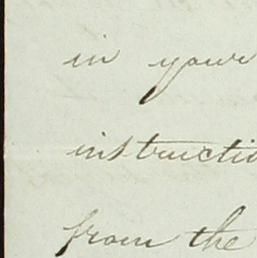 in your
instructio
from the